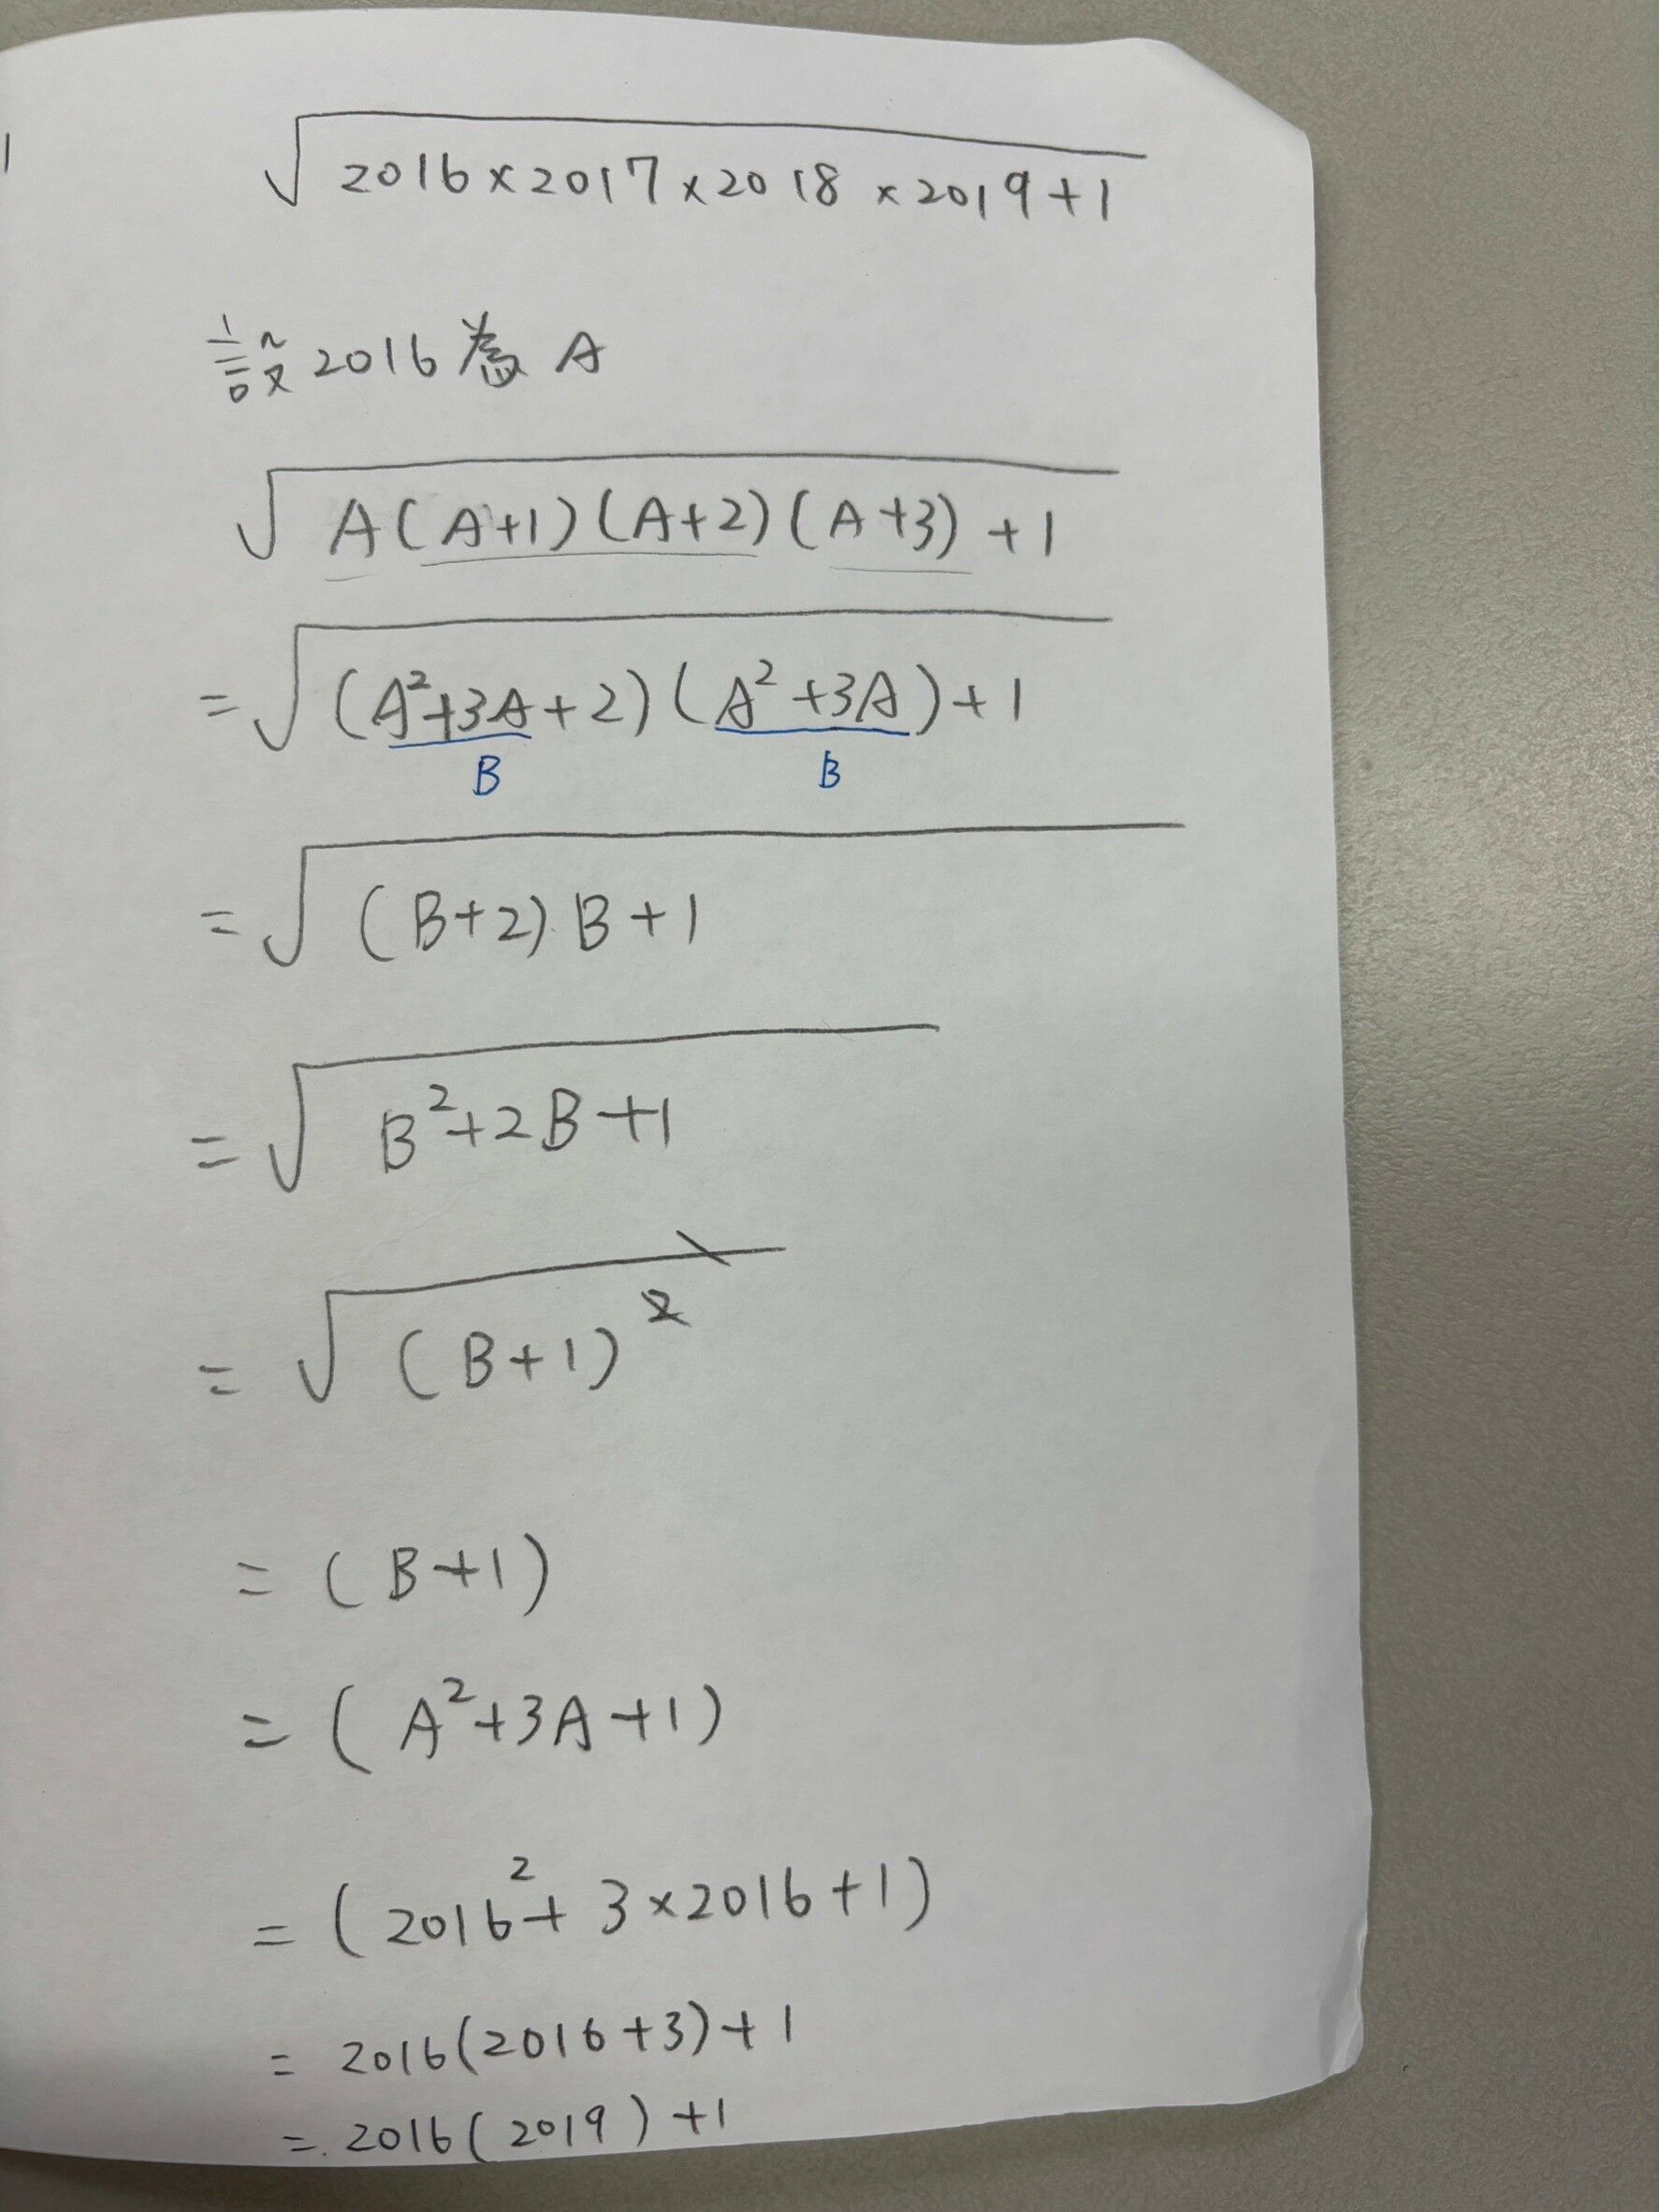 √2016×2017×2018×2019+1
設2016為A
√A(A+1)(A+2)(A+3)+1
=√(A²+3A+2)(A²+3A)+1
B B
=√(B+2)B+1
=√B²+2B+1
=√(B+1)²
=(B+1)
=(A²+3A+1)
=(2016²+3×2016+1)
=2016(2016+3)+1
=2016(2019)+1